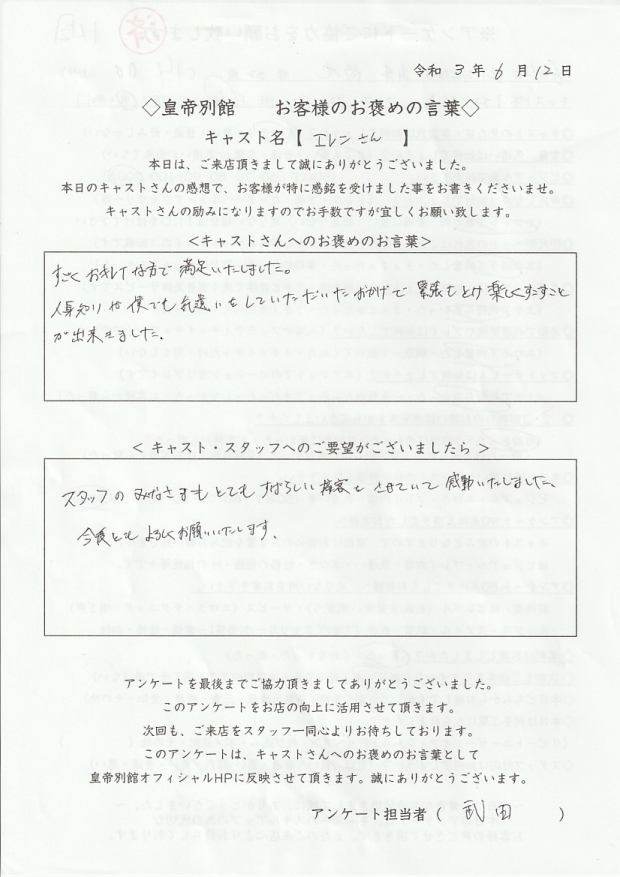 令和 3 年 6 月 12 日
◇皇帝別館 お客様のお褒めの言葉◇
キャスト名【 エレンさん 】
本日は、ご来店頂きまして誠にありがとうございました。
本日のキャストさんの感想で、お客様が特に感銘を受けました事をお書きくださいませ。
キャストさんの励みになりますのでお手数ですが宜しくお願い致します。
<キャストさんへのお褒めのお言葉>
すごくおキレイな方で満足いたしました。
人見知りな僕でも気遣いをしていただいたおかげで緊張もとけ楽しくすごすこと
が出来ました.
< キャスト・スタッフへのご要望がございましたら >
スタッフのみなさまもとてもすばらしい接客をさせていて感動いたしました、
今後ともよろしくお願いいたします.
アンケートを最後までご協力頂きましてありがとうございました。
このアンケートをお店の向上に活用させて頂きます。
次回も、ご来店をスタッフ一同心よりお待ちしております。
このアンケートは、キャストさんへのお褒めのお言葉として
皇帝別館オフィシャルHPに反映させて頂きます。誠にありがとうございます。
アンケート担当者（ 武田 ）